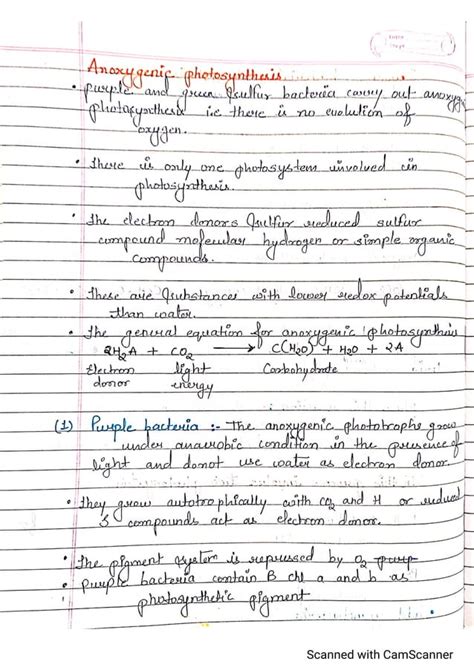 Anoxygenic photosynthesis.
• Purple and green sulfur bacteria carry out anoxyg
photosynthesis i.e there is no evolution of
oxygen.
• There is only one photosystem involved in
photosynthesis.
• The electron donors sulfur reduced sulfur
compound molecular hydrogen or simple organic
compounds.
• These are substances with lower redox potentials
than water.
• The general equation for anoxygenic photosynthesis
2H2A + CO2 → C(H2O) + H2O + 2A
Electron light Carbohydrate
donor energy
(1) Purple bacteria :- The anoxygenic phototrophs grow
under anaerobic condition in the presence of
light and donot use water as electron donor.
• They grow autotrophically with CO2 and H or reduced
S compounds act as electron donor.
• The pigment system is repressed by O2 purp
• Purple bacteria contain B chl a and b as
photosynthetic pigment
Scanned with CamScanner